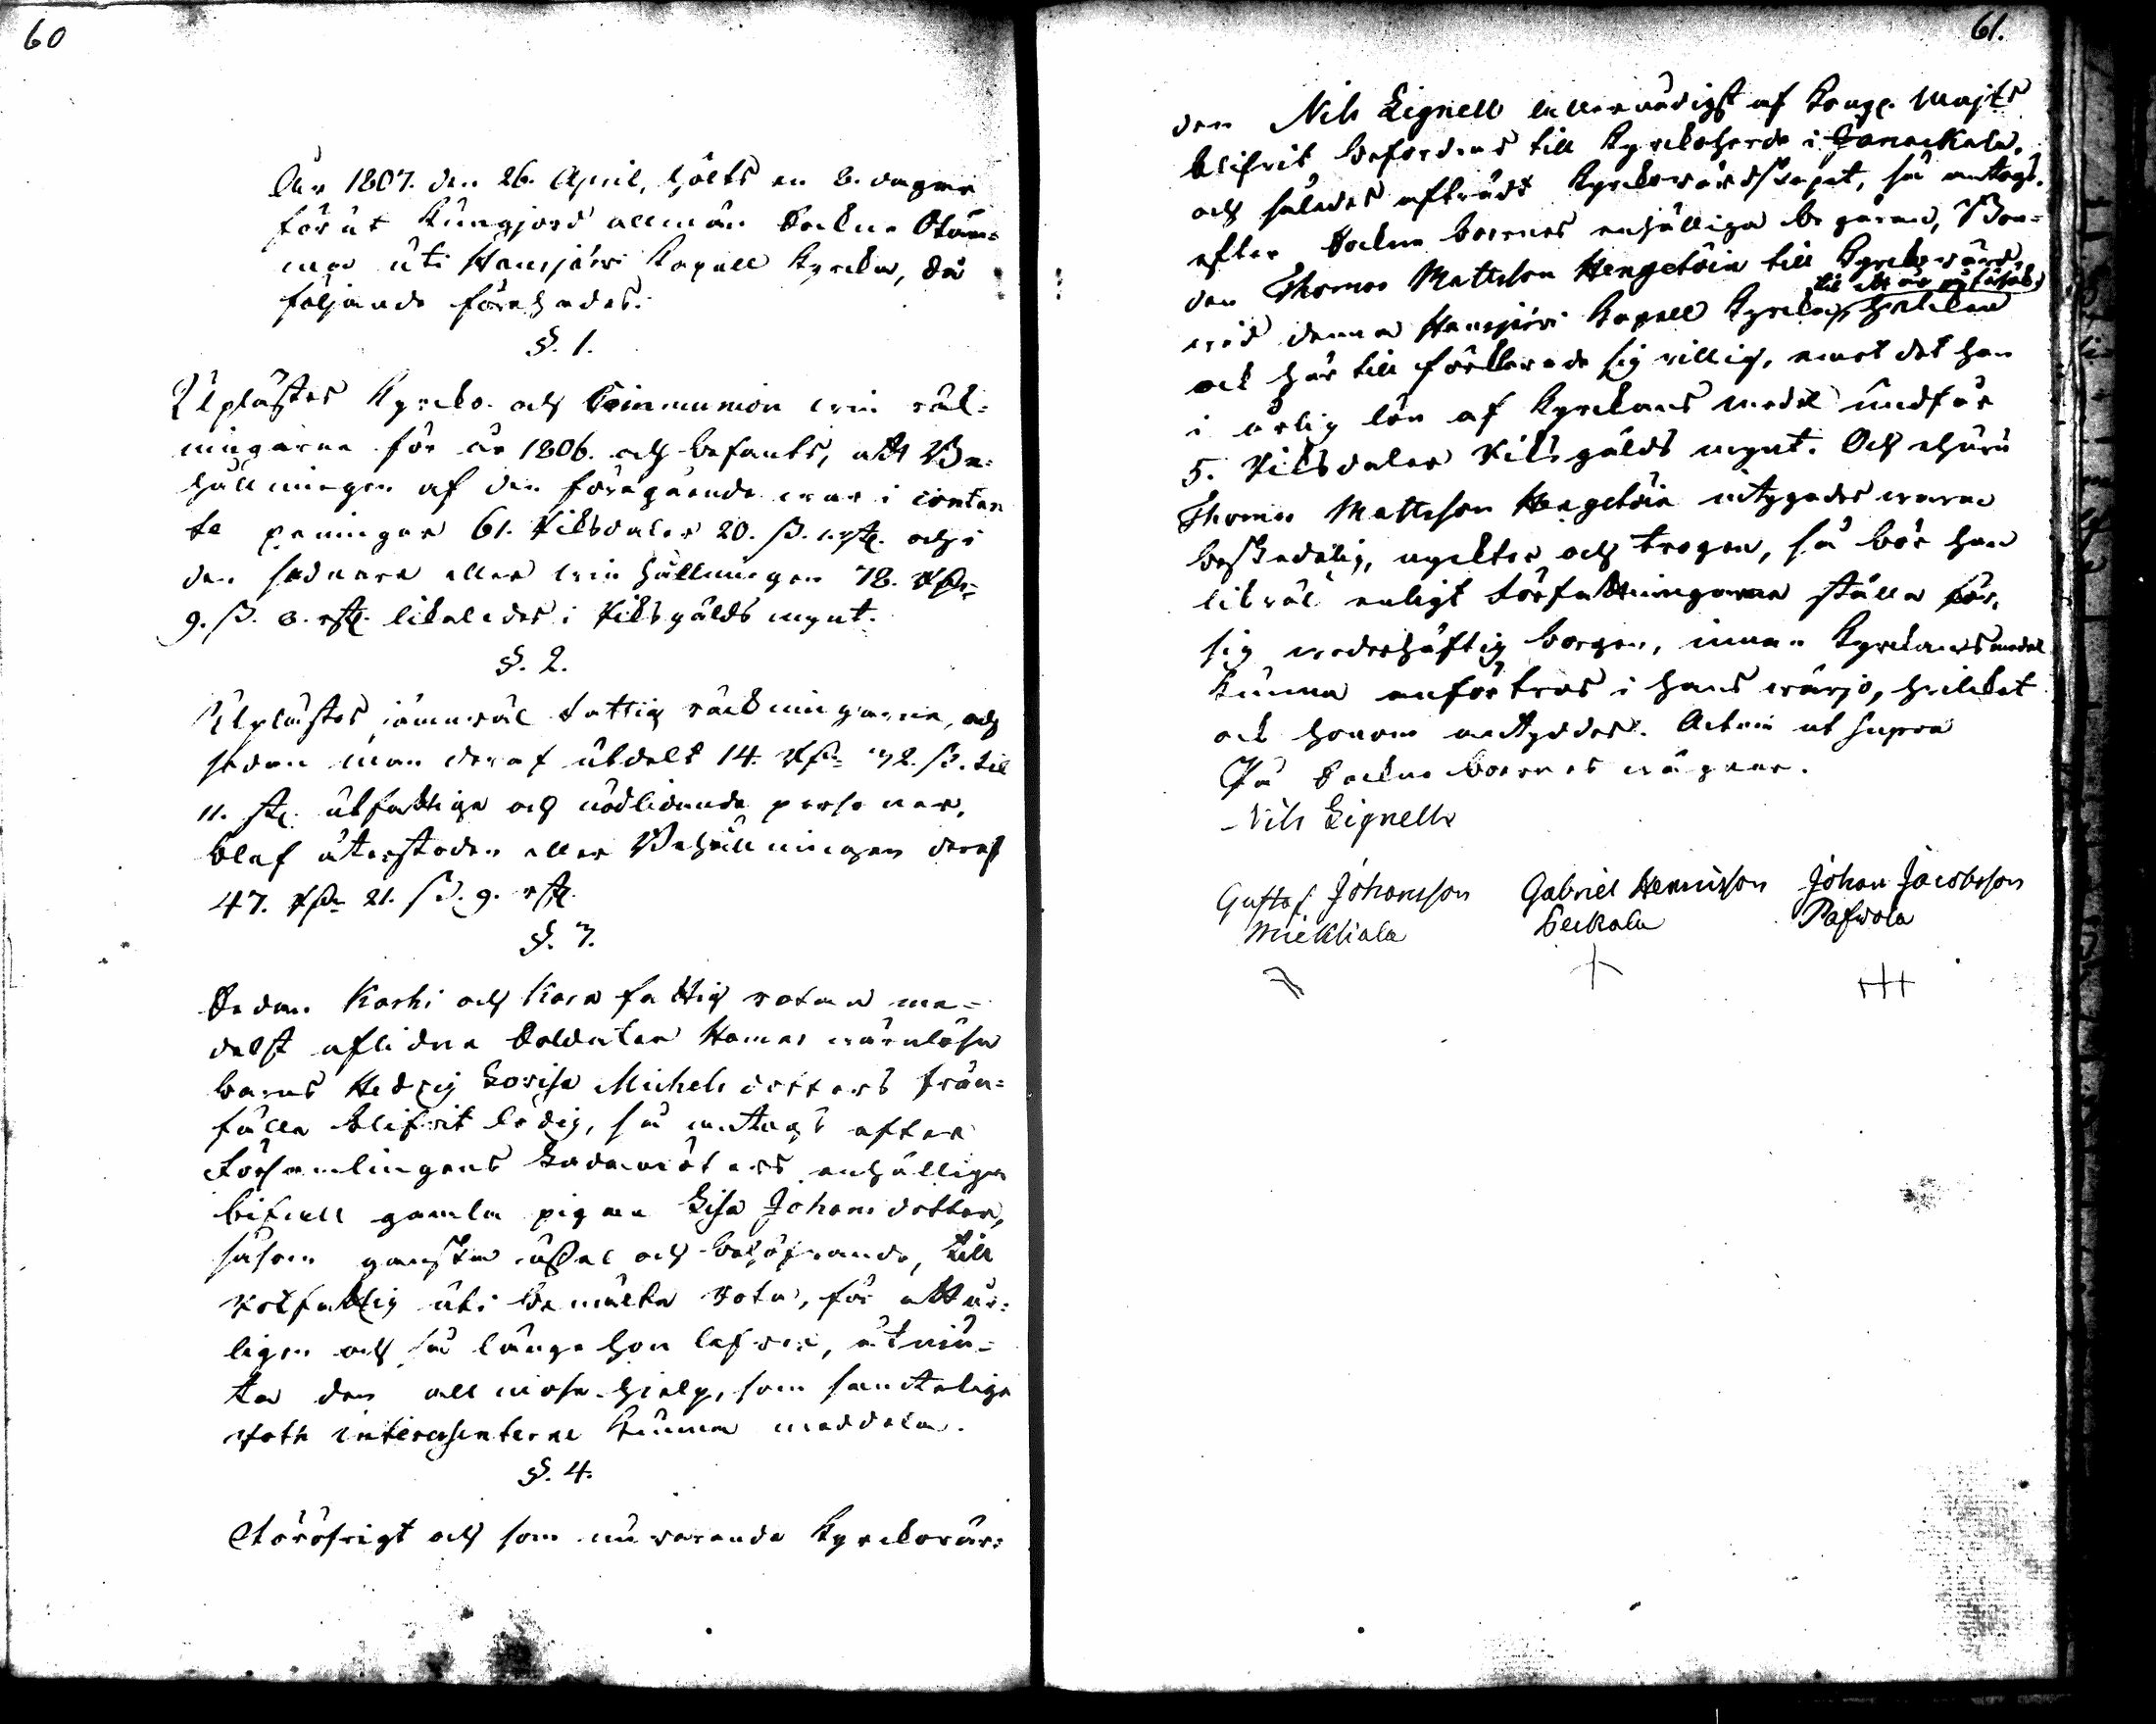 60
År 1807. den 26. April, hölts en 8. dagar
förut kungjord allmän Sockne Stäm=
ma uti Hausjärvi Kapell Kyrcka, då
följande förehades.
§. 1.
Uplästes Kyrcko- och Communion win räk=
ningarne för år 1806. och befants, att Be=
hållningen af den föregående war i contan
te penningar 61. Riksdaler 20. ß. rst. och i
den sednare eller win hållningen 78. Rdr
9. ß. 8. rst. likaledes i Riksgälds mynt.
§. 2.
Uplästes jämwäl Fattig räckningarne, och
sedan man deraf utdelt 14. Rdr 32. ß. til
11. st. utfattige och nödlidande personer,
blef återstoden eller Behållningen deraf
47. Rdr 21. ß. 9. rst.
§. 3.
Sedan Karhi och Kara fattig rotan me=
delst aflidne Soldaten Hamas wärnlösa
barns Hedvig Lovisa Michels dotters från=
fälle blifvit ledig, så antogs efter
Församlingens Ledamöters enhälliga
bifall gamla pigan Lisa Johans dotter,
såsom ganska usel och behöfvande, till
rotfattig uti bemälte Rota, för att år=
ligen och så länge hon lefver, åtniu=
ta den allmosa hjelp, som samtelige
Rote interessenterne kunna meddela.
§. 4.
Föröfrigt och som nuvarande Kyrckovär=
61.
den Nils Lignell allernådigst af Kongl. Majts
blifvit befordrad till Kyrckoherde i Janackala,
och således afträdt Kyrckovärdskapet, så antogs,
efter Sockne boernes enhälliga begäran, Bon=
den Thomas Mattsson Hengetöin till Kyrckovärd
wid denna Hausjärvi Kapell Kyrcka, hvilken
ock här till förklarade sig villig, emot det han
i årlig lön af Kyrckans medel undfår
5. Riksdaler Riksgälds mynt. Och ehuru
Thomas Mattsson Hengetöin intygades wara
beskedelig, nyckter och trogen, så bör han
likväl enligt Författningarne ställa för
sig wederhäftig borgen, innan Kyrckans medel
kunna anförtros i hans wärjo, hvilcket
ock honom antyddes. Actum ut supra
På Sockne boernes wägnar.
Nils Lignell
Gustaf Johansson Gabriel Henricsson Johan Jacobsson
Mickkala Seckala Pafwola